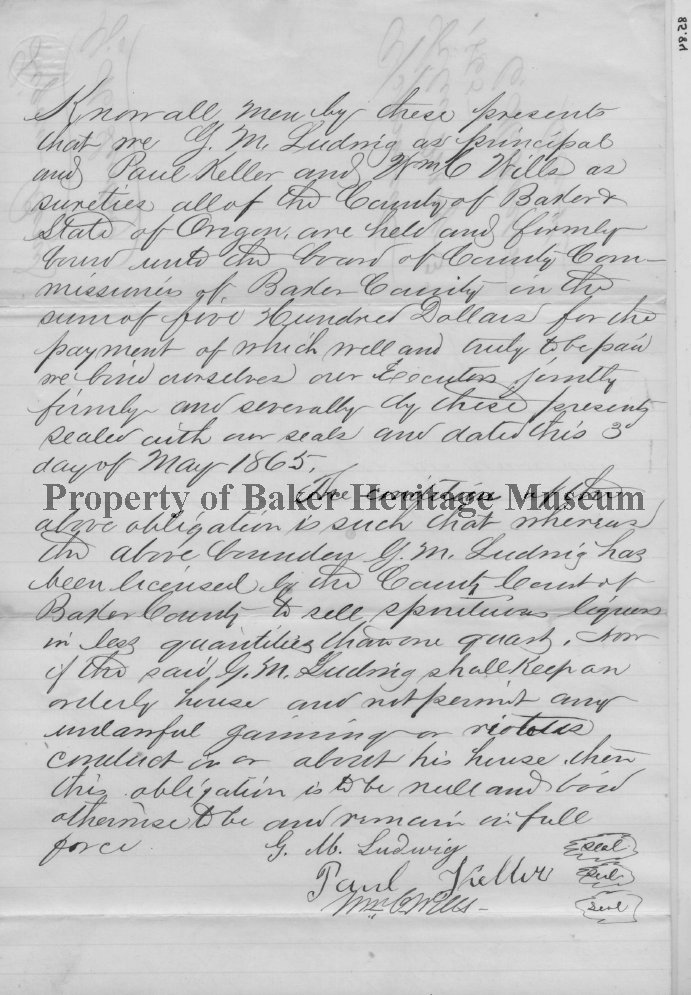 82.81
Know all men by these presents
that we G. M. Ludwig as principal
and Paul Keller and Wm C Wills as
sureties all of the County of Baker &
State of Oregon, are held and firmly
bound unto the board of County Com-
missioners of Baker County in the
sum of five Hundred Dollars for the
payment of which well and truly to be paid
we bind ourselves our Executors jointly
firmly and severally by these presents
sealed with our seals and dated this 3d
day of May 1865.
The condition of the
Property of Baker Heritage Museum
above obligation is such that whereas
the above bounden G. M. Ludwig has
been licensed by the County Court of
Baker County to sell spirituous liquors
in less quantities than one quart. Now
if the said G. M. Ludwig shall keep an
orderly house and not permit any
unlawful gaiming or riotous
conduct in or about his house then
this obligation is to be null and void
otherwise to be and remain in full
force
G. M. Ludwig seal
Paul Keller seal
Wm C Wills seal